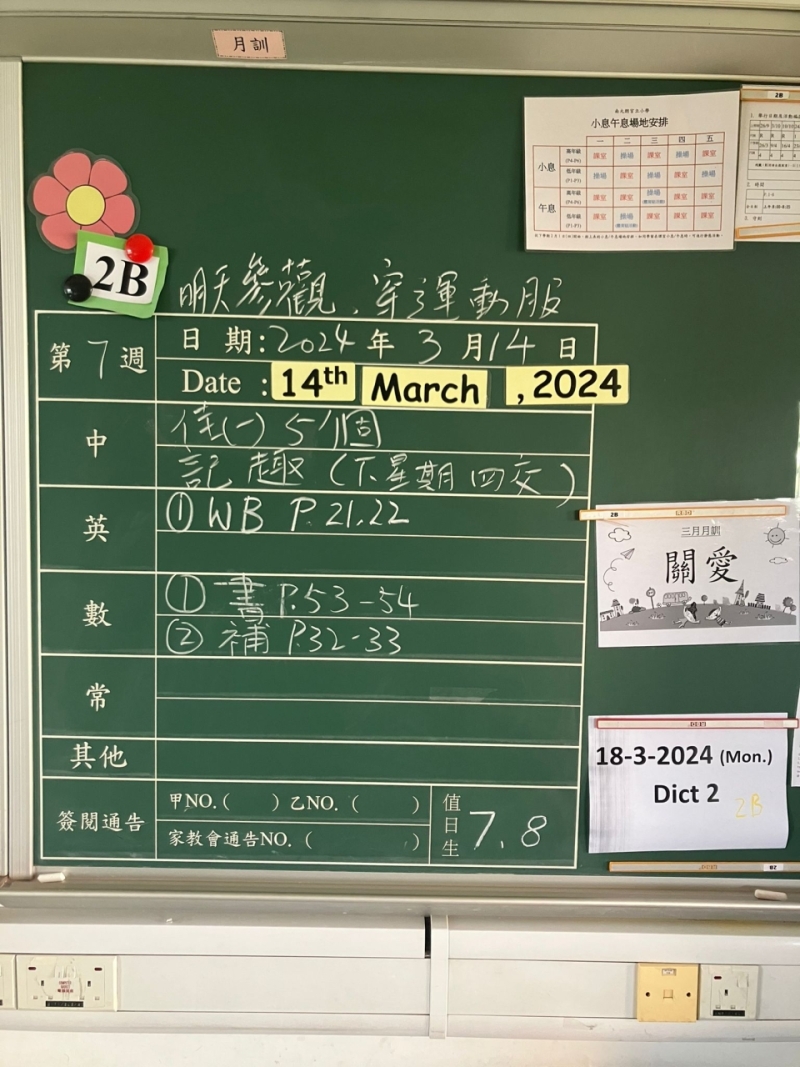 月訓
小息午息場地安排
一 二 三 四 五
小息
高年級 (P4-P6) 課室 操場 課室 操場 課室
低年級 (P1-P3) 操場 課室 操場 課室 操場
午息
高年級 課室 課室 操場 課室 課室
低年級 (P1-P3) 課室 操場 課室 課室 課室
2B
2B
明天參觀、穿運動服
第7週
日期:2024年3月14日
Date : 14th March , 2024
中
5個
記趣(下星期四交)
英
① WB P.21,22
數
① 書 P.53-54
② 補 P.32-33
常
其他
簽閱通告
甲NO.( ) 乙NO. ( )
家教會通告NO. ( )
值日生
7、8
2B
三月月訓
關愛
18-3-2024 (Mon.)
Dict 2
2B